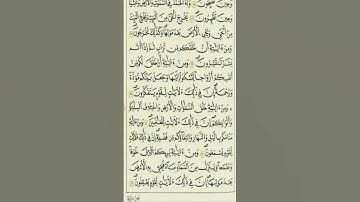 وَحِينَ تُصْبِحُونَ ۝ وَلَهُ الْحَمْدُ فِي السَّمَٰوَٰتِ وَالْأَرْضِ وَعَشِيًّا
وَحِينَ تُظْهِرُونَ ۝ يُخْرِجُ الْحَيَّ مِنَ الْمَيِّتِ وَيُخْرِجُ الْمَيِّتَ
مِنَ الْحَيِّ وَيُحْيِ الْأَرْضَ بَعْدَ مَوْتِهَا وَكَذَٰلِكَ تُخْرَجُونَ ۝
وَمِنْ ءَايَٰتِهِ أَنْ خَلَقَكُم مِّن تُرَابٍ ثُمَّ إِذَا أَنتُم
بَشَرٌ تَنتَشِرُونَ ۝ وَمِنْ ءَايَٰتِهِ أَنْ خَلَقَ لَكُم مِّنْ
أَنفُسِكُمْ أَزْوَٰجًا لِّتَسْكُنُوا إِلَيْهَا وَجَعَلَ بَيْنَكُم مَّوَدَّةً
وَرَحْمَةً إِنَّ فِي ذَٰلِكَ لَءَايَٰتٍ لِّقَوْمٍ يَتَفَكَّرُونَ ۝
وَمِنْ ءَايَٰتِهِ خَلْقُ السَّمَٰوَٰتِ وَالْأَرْضِ وَاخْتِلَٰفُ أَلْسِنَتِكُمْ
وَأَلْوَٰنِكُمْ إِنَّ فِي ذَٰلِكَ لَءَايَٰتٍ لِّلْعَٰلِمِينَ ۝ وَمِنْ ءَايَٰتِهِ
مَنَامُكُم بِالَّيْلِ وَالنَّهَارِ وَابْتِغَاؤُكُم مِّن فَضْلِهِ إِنَّ فِي ذَٰلِكَ لَءَايَٰتٍ
لِّقَوْمٍ يَسْمَعُونَ ۝ وَمِنْ ءَايَٰتِهِ يُرِيكُمُ الْبَرْقَ خَوْفًا
وَطَمَعًا وَيُنَزِّلُ مِنَ السَّمَاءِ مَاءً فَيُحْيِ بِهِ الْأَرْضَ
بَعْدَ مَوْتِهَا إِنَّ فِي ذَٰلِكَ لَءَايَٰتٍ لِّقَوْمٍ يَعْقِلُونَ ۝